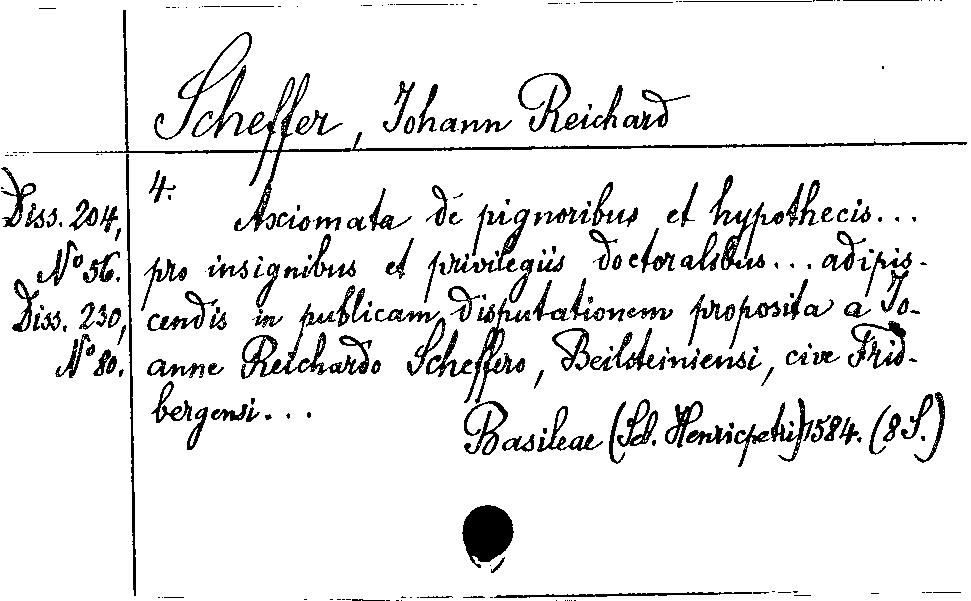 Scheffer, Johann Reichard
Diss. 204,
No 56.
Diss. 230,
No 80.
4.
Axiomata de pignoribus et hypothecis...
pro insignibus et privilegiis doctoralibus... adipis-
cendis in publicam disputationem proposita a Jo-
anne Reichardo Scheffero, Beilsteiniensi, cive Frid-
bergensi...
Basileae (Seb. Henricpetri) 1584. (8 S.)